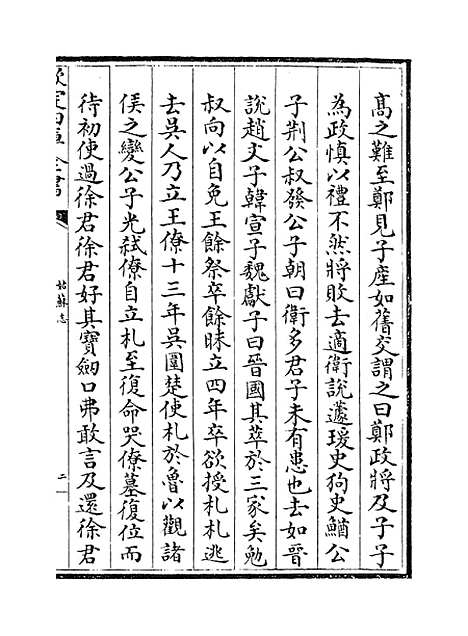 高之難至鄭見子產如舊交謂之曰鄭政將及子子
為政慎以禮不然將敗去適衛說蘧瑗史狗史鰌公
子荆公叔發公子朝曰衛多君子未有患也去如晉
說趙文子韓宣子魏獻子曰晉國其萃於三家矣勉
叔向以自免王餘祭卒餘昧立四年卒欲授札札逃
去吳人乃立王僚十三年吳圍楚使札於魯以觀諸
侯之變公子光弑僚自立札至復命哭僚墓復位而
待初使過徐君徐君好其寶劔口弗敢言及還徐君
欽定四庫全書
姑蘇志
二